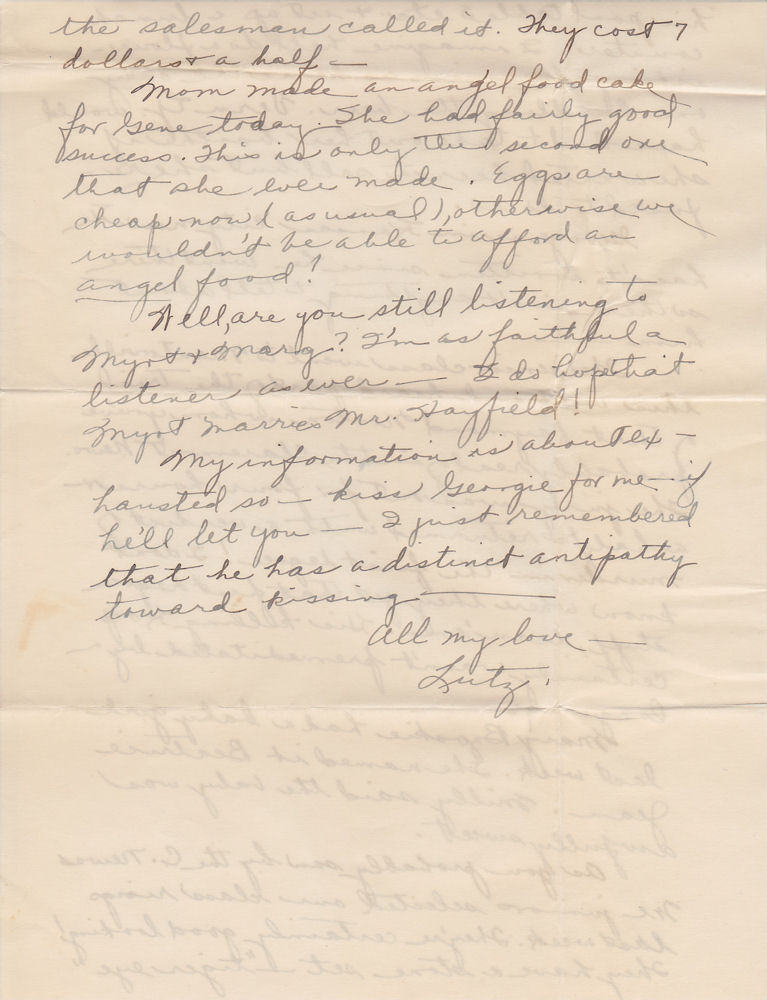 the salesman called it. They cost 7
dollars & a half —
Mom made an angel food cake
for Gene today. She had fairly good
success. This is only the second one
that she ever made. Eggs are
cheap now (as usual), otherwise we
wouldn't be able to afford an
angel food!
Well, are you still listening to
Myrt & Marg? I'm as faithful a
listener as ever — I do hope that
Myrt marries Mr. Hayfield!
My information is about ex-
hausted so — kiss Georgie for me — if
he'll let you — I just remembered
that he has a distinct antipathy
toward kissing —
All my love —
Lutz.